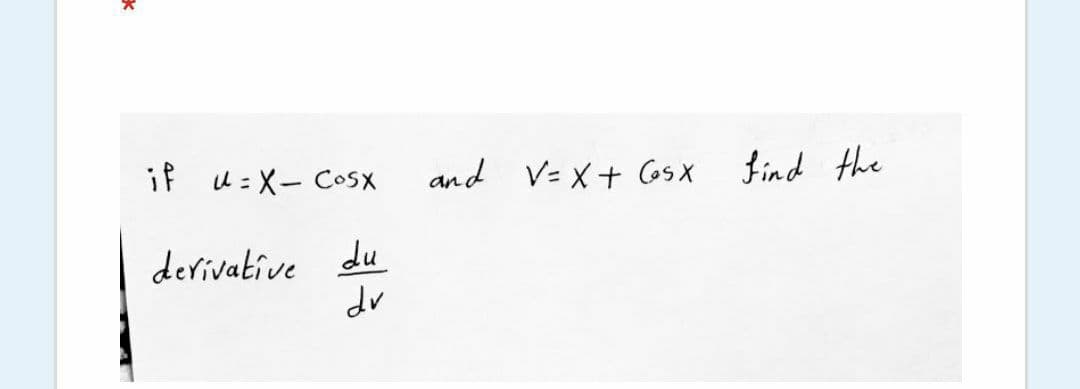 *
if u = x - cosx and v = x + cosx find the
derivative du
dv